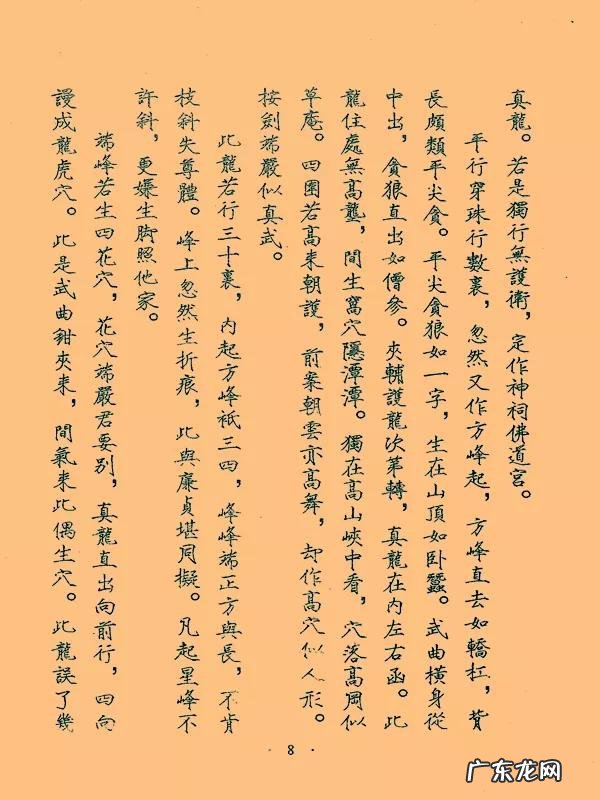 真龍。若是獨行無護衛，定作神祠佛道宮。
平行穿珠行數裏，忽然又作方峰起，方峰直去如轎杠，背
長頗類平尖貪。平尖貪狼如一字，生在山頂如卧蠶。武曲橫身從
中出，貪狼直出如僧參。夾輔護龍次第轉，真龍在內左右函。此
龍住處無高壟，間生窩穴隱潭潭。獨在高山峽中看，穴落高岡似
草庵。四圍若高來朝護，前案朝雲亦高舞，却作高穴似人形。
按劍端嚴似真武。
此龍若行三十裏，內起方峰衹三四，峰峰端正方與長，不肯
枝斜失尊體。峰上忽然生折痕，此與廉貞堪同擬。凡起星峰不
許斜，更嫌生脚照他家。
端峰若生四花穴，花穴端嚴君要別，真龍直出向前行，四向
謾成龍虎穴。此是武曲鉗夾來，間氣來此偶生穴。此龍誤了幾
· 8 ·
广东龙网